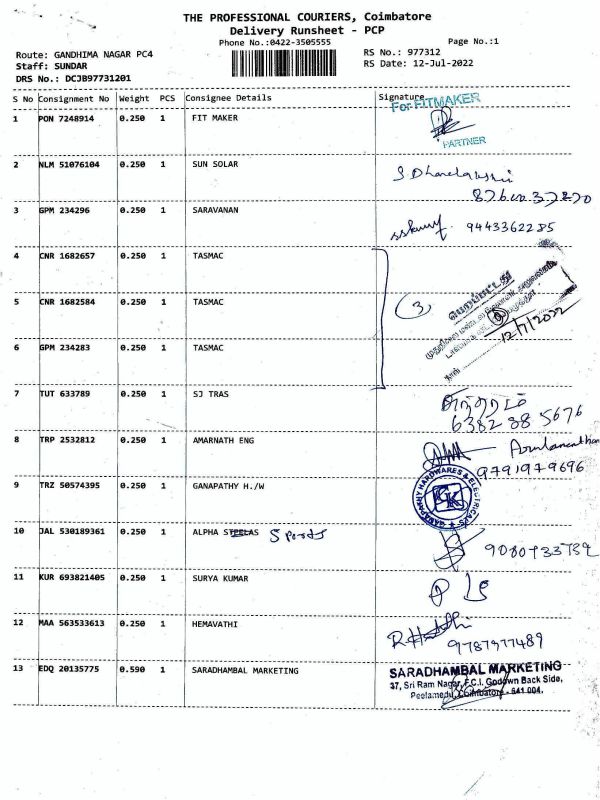 THE PROFESSIONAL COURIERS, Coimbatore
Delivery Runsheet - PCP
Phone No.:0422-3505555
Page No.:1
Route: GANDHIMA NAGAR PC4
RS No.: 977312
Staff: SUNDAR
RS Date: 12-Jul-2022
DRS No.: DCJB97731201
S No Consignment No Weight PCS Consignee Details Signature
For FITMAKER
1 PON 7248914 0.250 1 FIT MAKER
PARTNER
2 NLM 51076104 0.250 1 SUN SOLAR
3 GPM 234296 0.250 1 SARAVANAN
9443362285
4 CNR 1682657 0.250 1 TASMAC
5 CNR 1682584 0.250 1 TASMAC
(3) பெறப்பட்டது
12/7/2022
6 GPM 234283 0.250 1 TASMAC
7 TUT 633789 0.250 1 SJ TRAS
6382 88 5676
8 TRP 2532812 0.250 1 AMARNATH ENG
9791979696
9 TRZ 50574395 0.250 1 GANAPATHY H./W
GANAPATHY HARDWARES & ELECTRICALS
GK
10 JAL 530189361 0.250 1 ALPHA Sports
11 KUR 693821405 0.250 1 SURYA KUMAR
12 MAA 563533613 0.250 1 HEMAVATHI
9787977489
13 EDQ 20135775 0.590 1 SARADHAMBAL MARKETING
SARADHAMBAL MARKETING
37, Sri Ram Nagar, F.C.I. Godown Back Side,
Peelamedu, Coimbatore - 641 004.